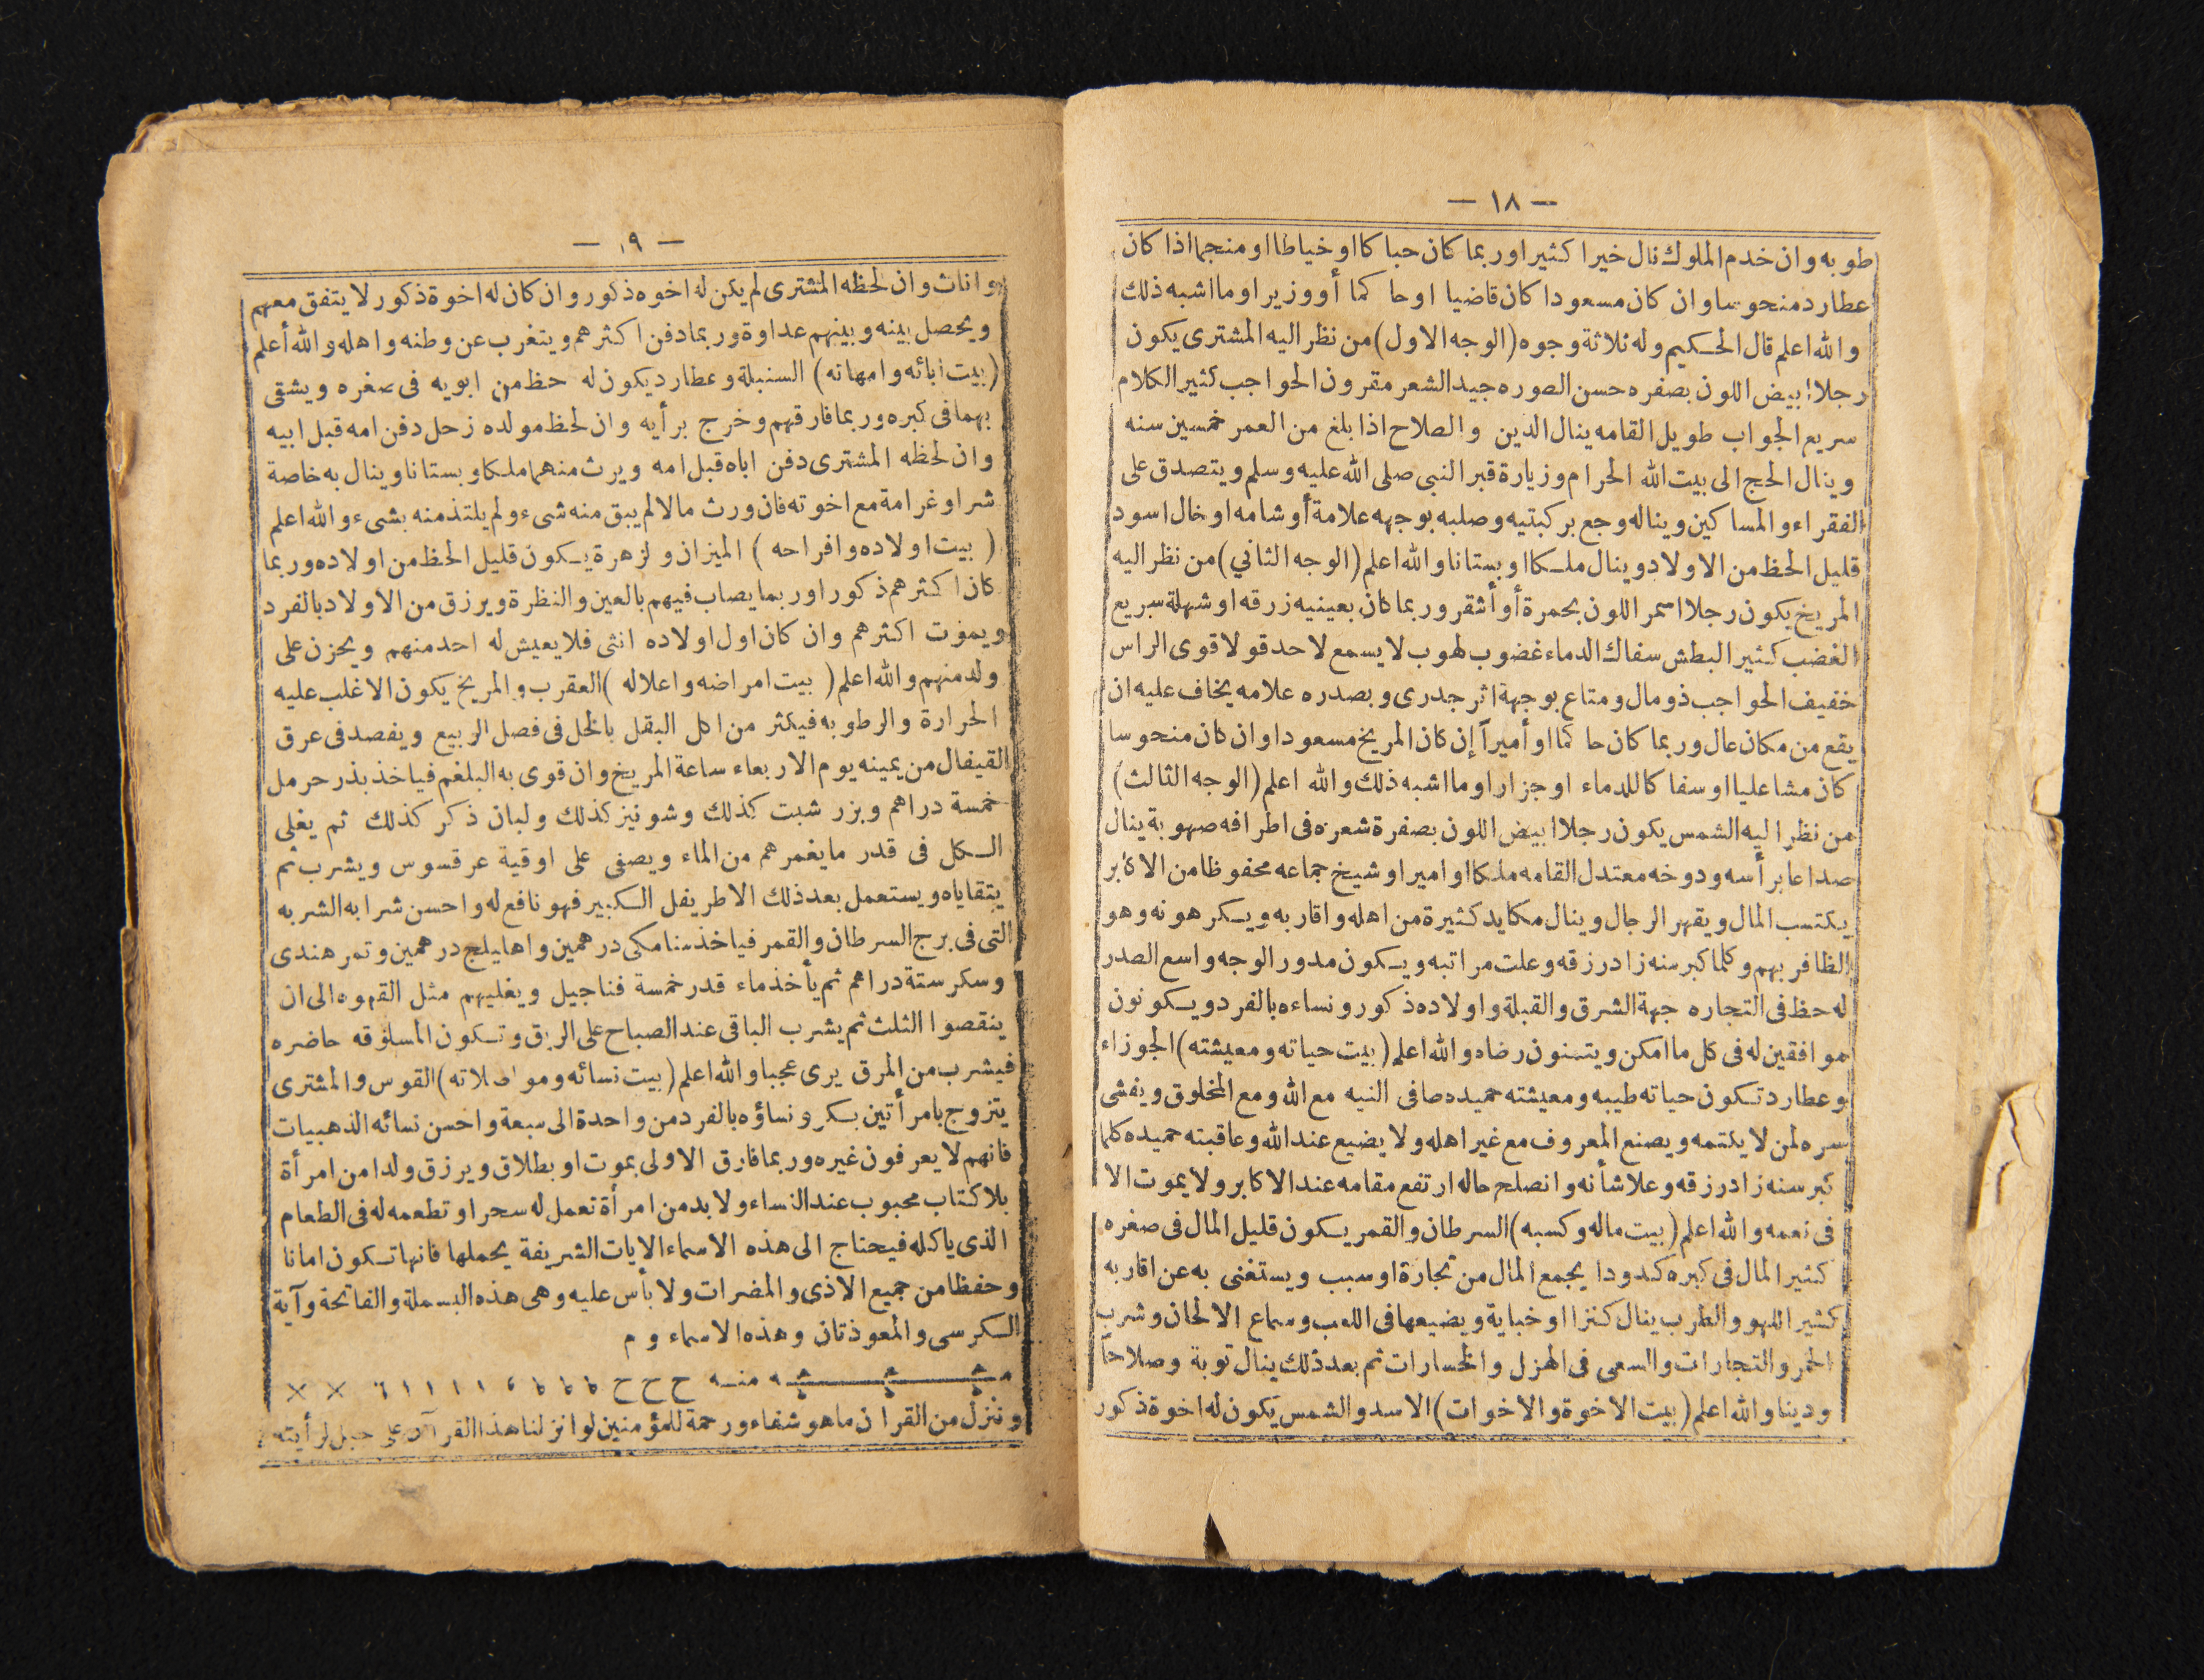 — ١٨ —
طوبه وان خدم الملوك نال خيرا كثيرا وربما كان حباكا او خياطا او منجما اذا كان
عطارد منحوسا وان كان مسعودا كان قاضيا او حاكما أو وزيرا او ما اشبه ذلك
والله اعلم قال الحكيم وله ثلاثة وجوه (الوجه الاول) من نظر اليه المشترى يكون
رجلا ابيض اللون بصفره حسن الصوره جيد الشعر مقرون الحواجب كثير الكلام
سريع الجواب طويل القامه ينال الدين والصلاح اذا بلغ من العمر خمسين سنه
وينال الحج الى بيت الله الحرام وزيارة قبر النبى صلى الله عليه وسلم ويتصدق على
الفقراء والمساكين ويناله وجع بركبتيه وصلبه بوجهه علامة أو شامه او خال اسود
قليل الحظ من الاولاد وينال ملكا او بستانا والله اعلم (الوجه الثاني) من نظر اليه
المريخ يكون رجلا اسمر اللون بحمرة أو أشقر وربما كان بعينيه زرقه او شهلة سريع
الغضب كثير البطش سفاك الدماء غضوب لهوب لا يسمع لاحد قولا قوى الراس
خفيف الحواجب ذو مال ومتاع بوجهة اثر جدرى وبصدره علامه يخاف عليه ان
يقع من مكان عال وربما كان حاكما او أميرآ إن كان المريخ مسعودا وان كان منحوسا
كان مشاعليا او سفاكا للدماء او جزارا وما اشبه ذلك والله اعلم (الوجه الثالث)
من نظر اليه الشمس يكون رجلا ابيض اللون بصفرة شعره فى اطرافه صهوبة ينال
صداعا برأسه ودوخه معتدل القامه ملكا او اميرا او شيخ جماعه محفوظا من الاكابر
يكتسب المال ويقهر الرجال وينال مكايد كثيرة من اهله واقاربه ويكرهونه وهو
الظافر بهم وكلما كبر سنه زاد رزقه وعلت مراتبه ويكون مدور الوجه واسع الصدر
له حظ فى التجاره جهة الشرق والقبلة واولاده ذكور ونساءه بالفرد ويكونون
موافقين له فى كل ما امكن ويتمنون رضاه والله اعلم (بيت حياته ومعيشته) الجوزاء
وعطارد تكون حياته طيبه ومعيشته حميده صافى النيه مع الله ومع المخلوق ويفشى
سره لمن لا يكتمه ويصنع المعروف مع غير اهله ولا يضيع عند الله وعاقبته حميده كلما
كبر سنه زاد رزقه وعلا شأنه وانصلح حاله ارتفع مقامه عند الاكابر ولا يموت الا
فى نعمه والله اعلم (بيت ماله وكسبه) السرطان والقمر يكون قليل المال فى صغره
كثير المال فى كبره كدودا يجمع المال من تجارة او سبب ويستغنى به عن اقاربه
كثير اللهو والطرب ينال كنزا او خباية ويضيعها فى اللعب وسماع الالحان وشرب
الخمر والتجارات والسعى فى الهزل والخسارات ثم بعد ذلك ينال توبة وصلاحاً
ودينا والله اعلم (بيت الاخوة والاخوات) الاسد والشمس يكون له اخوة ذكور
— ١٩ —
واناث وان لحظه المشترى لم يكن له اخوه ذكور وان كان له اخوة ذكور لا يتفق معهم
ويحصل بينه وبينهم عداوة وربما دفن اكثرهم ويتغرب عن وطنه واهله والله أعلم
(بيت ابائه وامهاته) السنبلة وعطارد يكون له حظ من ابويه فى صغره ويشقى
بهما فى كبره وربما فارقهم وخرج برأيه وان لحظ مولده زحل دفن امه قبل ابيه
وان لحظه المشترى دفن اباه قبل امه ويرث منهما ملكا وبستانا وينال به خاصة
شرا وغرامة مع اخوته فان ورث مالا لم يبق منه شىء ولم يلتذ منه بشىء والله اعلم
( بيت اولاده وافراحه ) الميزان ولزهرة يكون قليل الحظ من اولاده وربما
كان اكثرهم ذكورا وربما يصاب فيهم بالعين والنظرة ويرزق من الاولاد بالفرد
ويموت اكثرهم وان كان اول اولاده انثى فلا يعيش له احد منهم ويحزن على
ولد منهم والله اعلم ( بيت امراضه واعلاله ) العقرب والمريخ يكون الاغلب عليه
الحرارة والرطوبه فيكثر من اكل البقل بالخل فى فصل الربيع ويفصد فى عرق
القيفال من يمينه يوم الاربعاء ساعة المريخ وان قوى به البلغم فياخذ بذر حرمل
خمسة دراهم وبزر شبت كذلك وشونيز كذلك ولبان ذكر كذلك ثم يغلى
الكل فى قدر ما يغمرهم من الماء ويصفى على اوقية عرقسوس ويشرب ثم
يتقاياه ويستعمل بعد ذلك الاطريفل الكبير فهو نافع له واحسن شرابه الشربه
التى فى برج السرطان والقمر فياخذ سنامكى درهمين واهايلج درهمين وتمر هندى
وسكر ستة دراهم ثم يأخذ ماء قدر خمسة فناجيل ويغليهم مثل القهوه الى ان
ينقصوا الثلث ثم يشرب الباقى عند الصباح على الريق وتكون المسلوقه حاضره
فيشرب من المرق يرى عجبا والله اعلم (بيت نسائه ومواصلاته) القوس والمشترى
يتزوج بامرأتين بكر ونساؤه بالفرد من واحدة الى سبعة واحسن نسائه الذهبيات
فانهم لا يعرفون غيره وربما فارق الاولى بموت او بطلاق ويرزق ولدا من امرأة
بلا كتاب محبوب عند النساء ولا بد من امرأة تعمل له سحرا وتطعمه له فى الطعام
الذى ياكله فيحتاج الى هذه الاسماء الايات الشريفة يحملها فانها تكون امانا
وحفظا من جميع الاذى والمضرات ولا بأس عليه وهى هذه البسملة والفاتحة وآية
الكرسى والمعوذتان وهذه الاسماء و م
منه ح ح ح ١ ١ ١ ١ ٦ × ×
وننزل من القران ما هو شفاء ورحمة للمؤمنين لو انزلنا هذا القرآن على جبل لرأيته